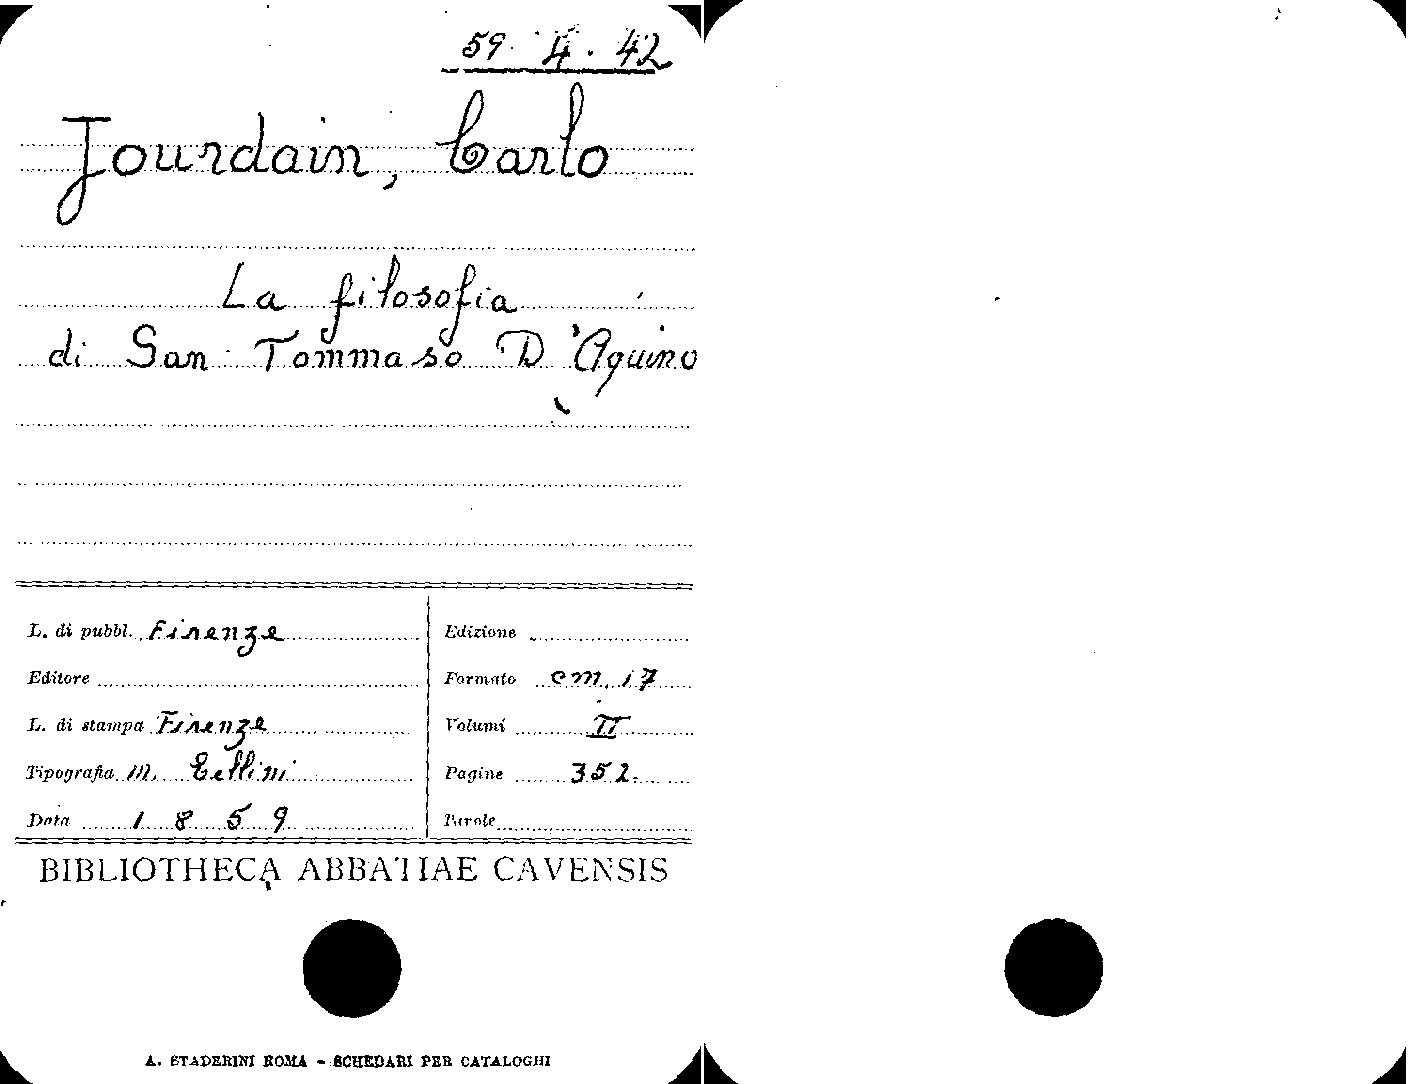 59. 4. 42
Jourdain, Carlo
La filosofia
di San Tommaso D'Aquino
L. di pubbl. Firenze
Editore
L. di stampa Firenze
Tipografia M. Cellini
Data 1859
Edizione
Formato cm. 17
Volumi II
Pagine 352.
Tavole
BIBLIOTHECA ABBATIAE CAVENSIS
A. STADERINI ROMA - SCHEDARI PER CATALOGHI